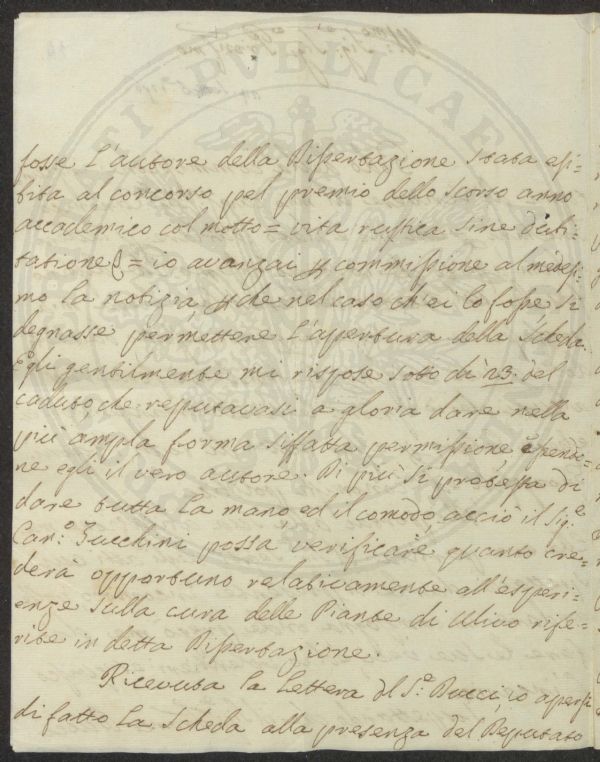 fosse l'autore della Dissertazione stata esi=
bita al concorso pel premio dello scorso anno
accademico col motto = vita rustica sine dubi=
tatione = io avanzai commissione al medes=
mo la notizia, che nel caso ch'ei lo fosse, si
degnasse permettere l'apertura della Scheda.
Egli gentilmente mi rispose sotto dì 23. del
caduto, che reputavasi a gloria dare nella
più ampla forma siffatta permissione
ne egli il vero autore. Di più si protesta di
dare tutta la mano, ed il comodo, acciò il Sig.e
Can.o Zucchini possa verificare quanto cre=
derà opportuno relativamente all'esperi=
enze sulla cura delle Piante di Ulivo rife=
rite in detta Dissertazione.
Ricevuta la Lettera del S.r Bucci, io apersi
di fatto la Scheda alla presenza del Deputato